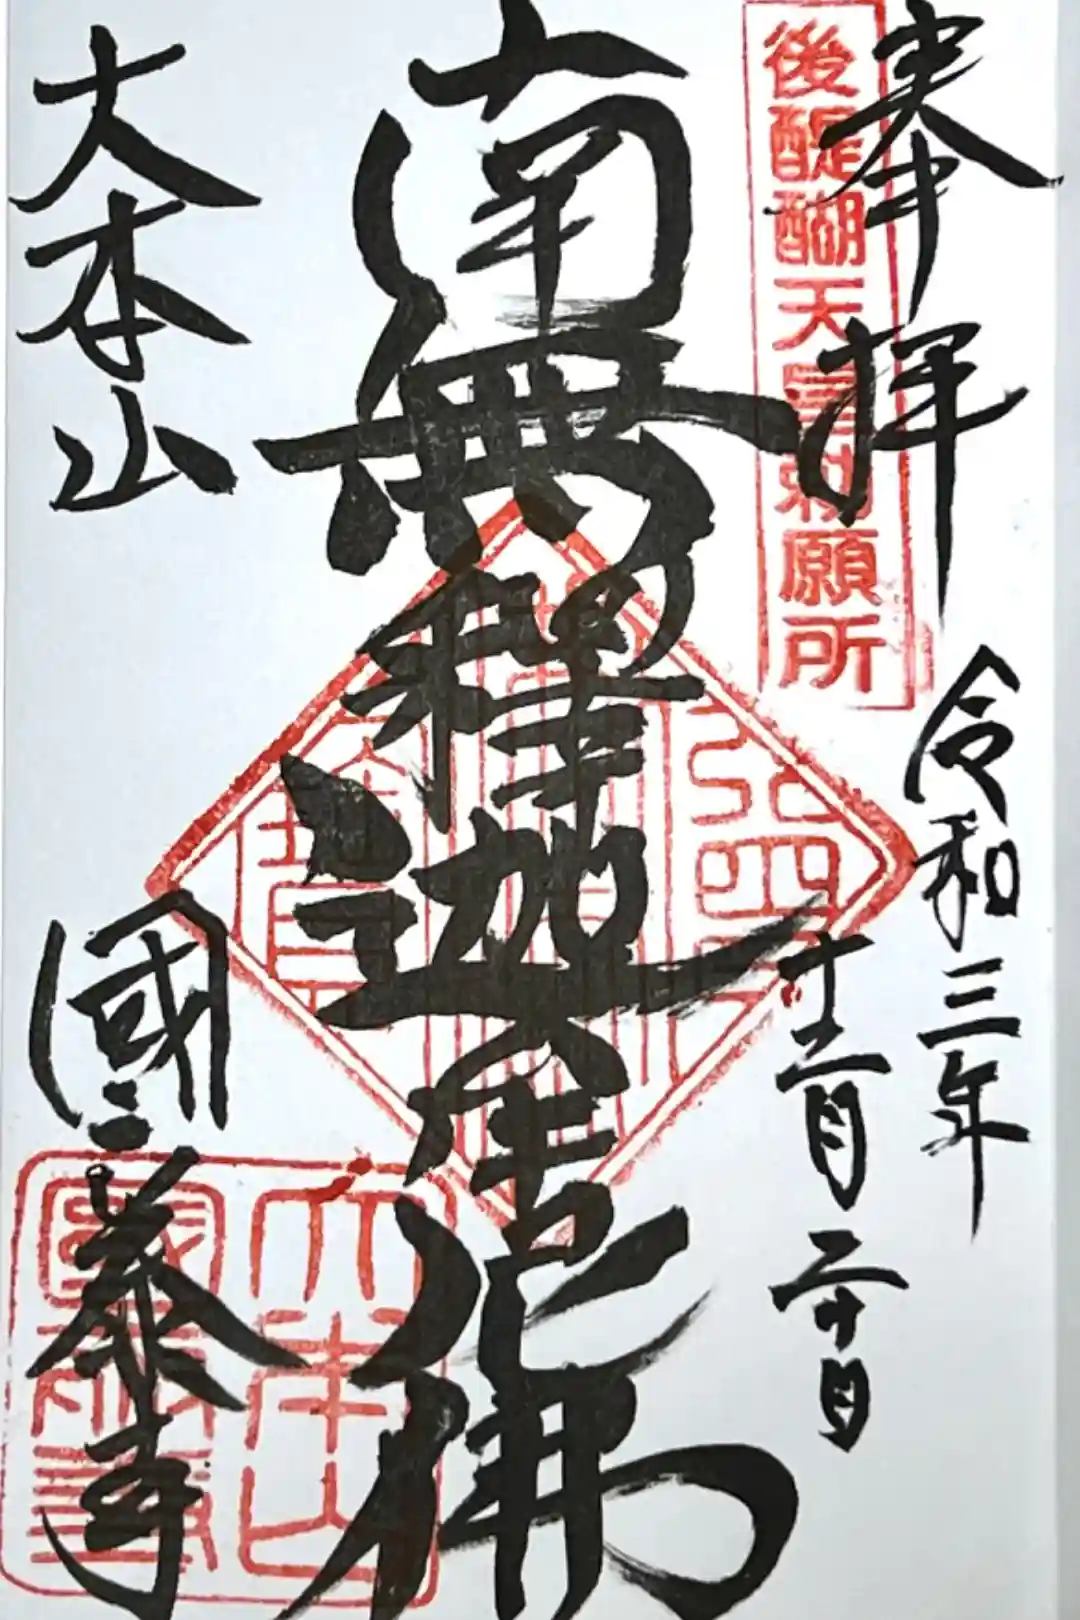 奉拝
令和三年
十二月二十日
後醍醐天皇勅願所
南無釋迦牟尼佛
大本山
國泰寺
大本山
國泰寺